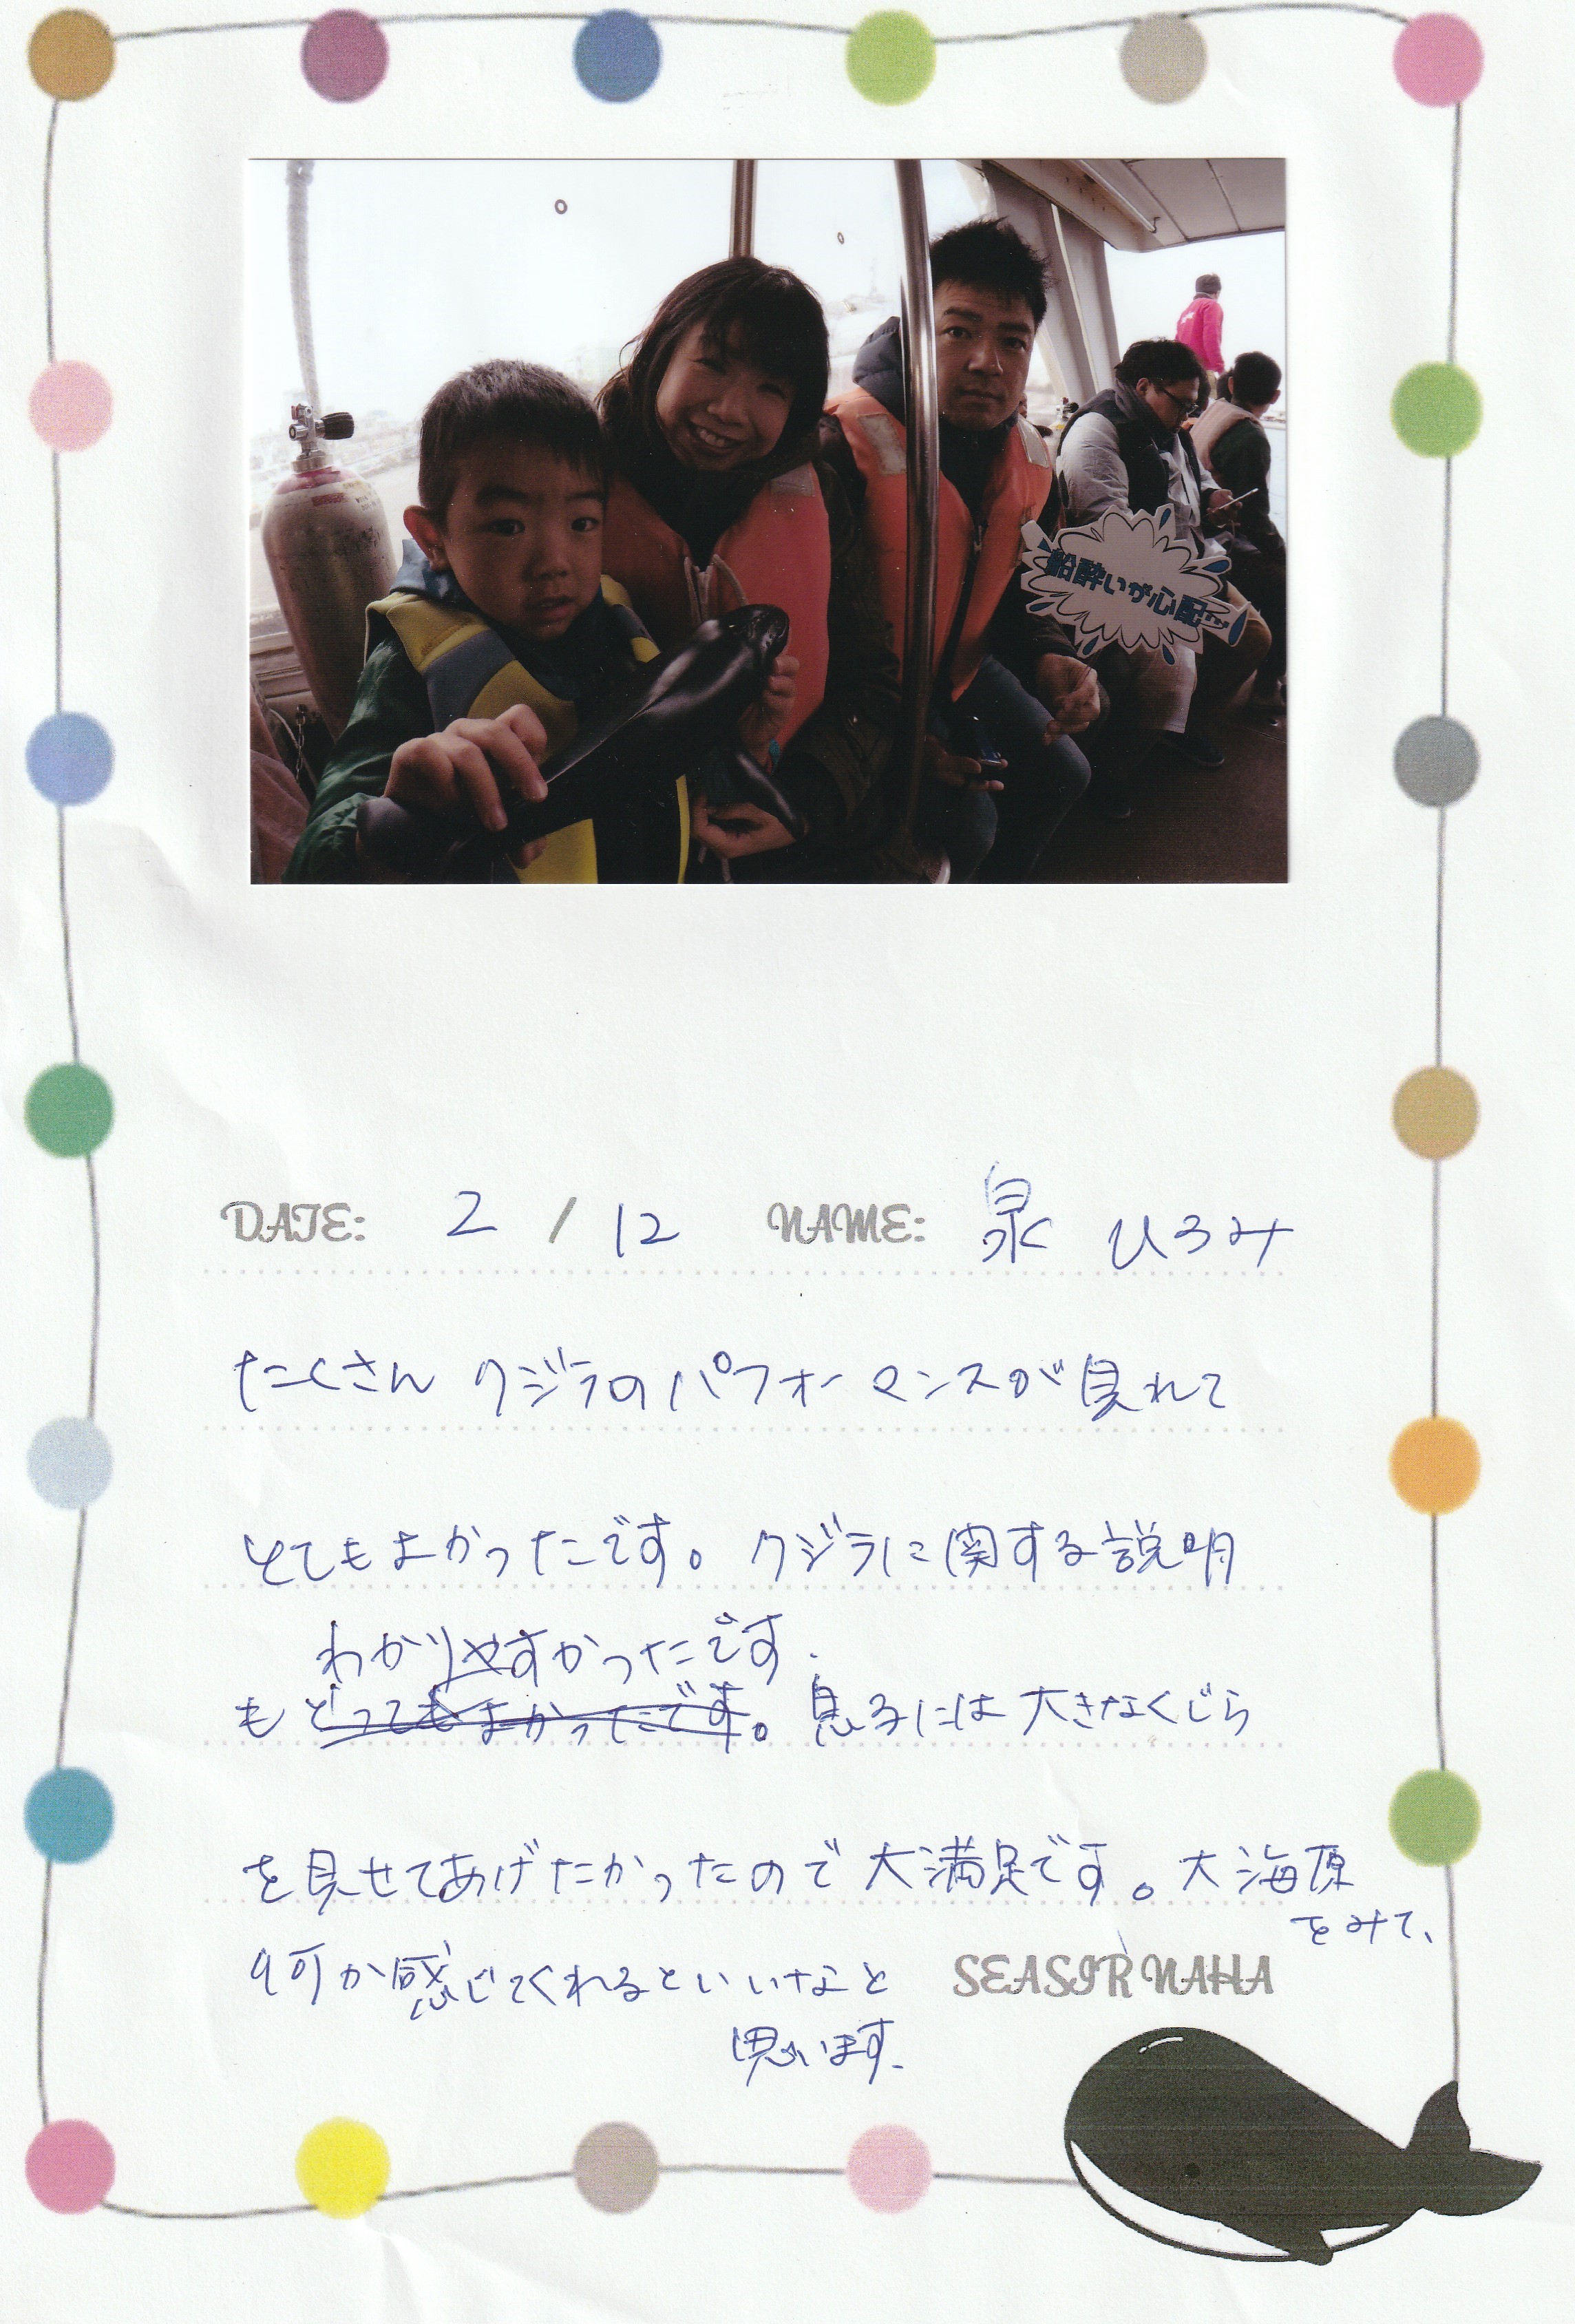 船酔いが心配
DATE: 2 / 12 NAME: 泉 ひろみ
たくさん クジラのパフォーマンスが見れて
とてもよかったです。クジラに関する説明
わかりやすかったです.
も とってもよかったです。息子には大きなくじら
を見せてあげたかったので大満足です。大海原
をみて、
何か感じてくれるといいなと
SEASIR NAHA
思います.